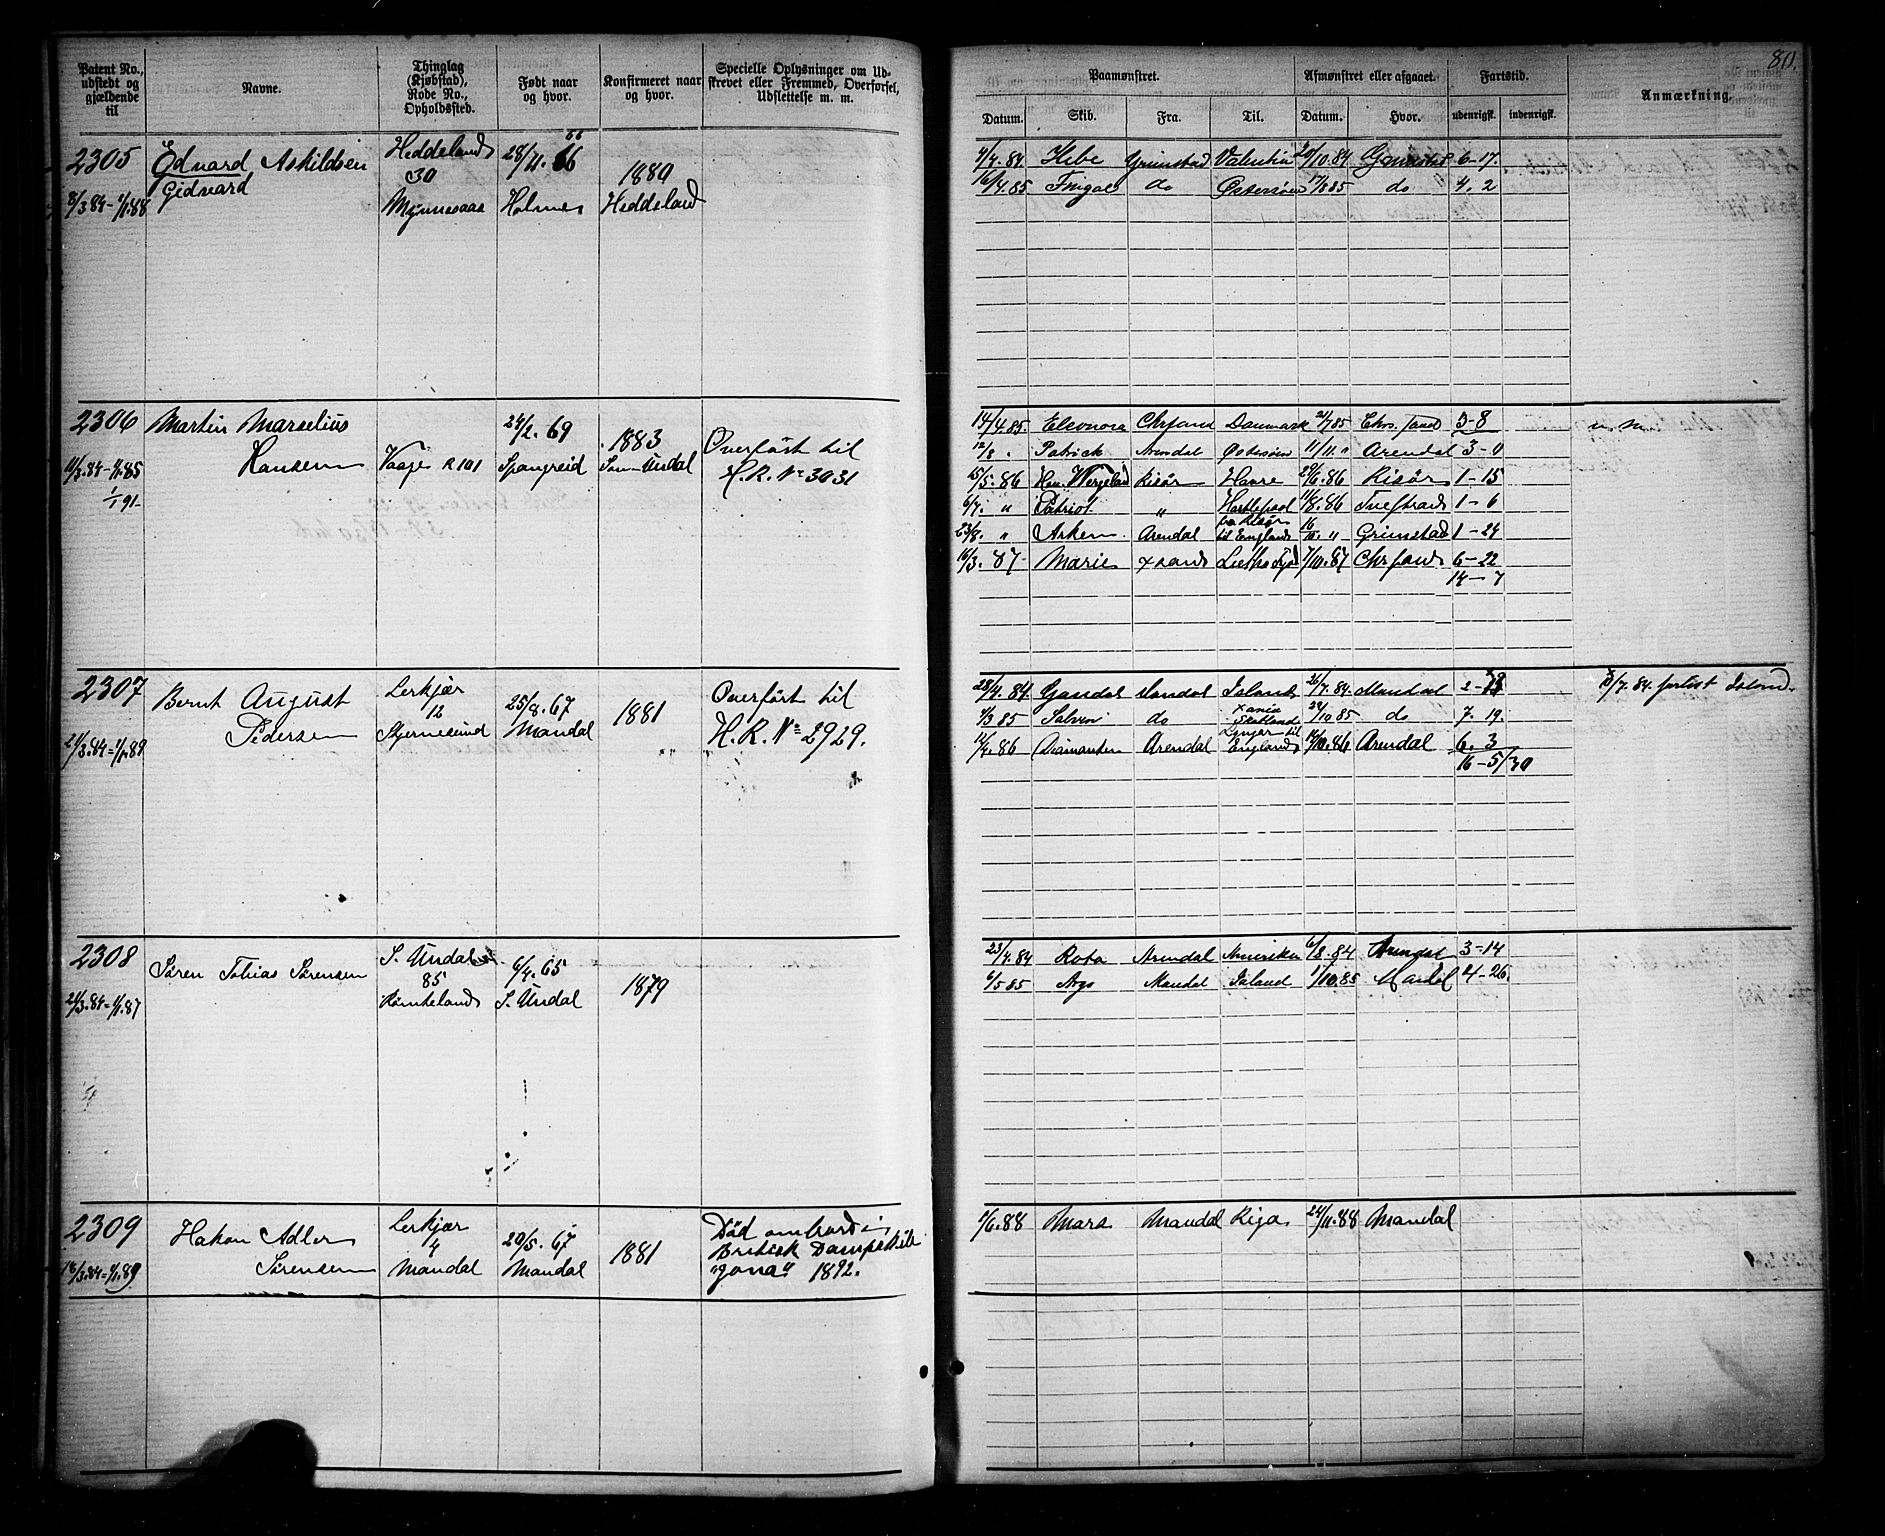 80.
Patent No., udstedt og gjældende til
Navne.
Thinglag (Kjøbstad), Rode No., Opholdssted.
Født naar og hvor.
Konfirmeret naar og hvor.
Specielle Oplysninger om Udskrevet eller Fremmed, Overførsel, Udslettelse m. m.
Paamønstret.
Afmønstret eller afgaaet.
Fartstid.
Anmærkning
Datum. Skib. Fra. Til. Datum. Hvor. udenrigsk. indenrigsk.
2305 Edvard Askildsen Heddeland 28/11. 66 66 1880
Gidvard 30
8/3 84 - 1/1.88 Holme Heddeland
4/4.84 Hebe Grimstad 20/10.84 Grimstad 6-17.
16/4.85 Fingal do Østersøen 17/8 85 do 4. 2
2306 Martin Marselius 24/2. 69 1883 Overført til
Hansen Vaage R 101 Spangreid Søn Undal H.R. No 3031
11/3.84 - 1/1.85
1/1 91
14/4.85. Eleonora Chrsand Danmark 21/7 85 Chrs.sand 3-8
12/8 . Patrick Arendal Østersøen 11/11. " Arendal 3-0
25/5. 86 Hen. Wergeland Risør Havre 29/6.86 Risør 1-15
6/7. " Patriot " Hartlepool 11/8.86 1-6
23/8. " Asken Arendal fra Risør til England 16/10. " Grimstad 1-24
16/3. 87 Marie xsand 7/10.87 Chrsand 6-22
14-7
2307 Bernt August Lerkjær 25/8.67 1881 Overført til
Pedersen 12 Mandal H.R. No 2929.
21/3.84 - 1/1.89 Skjernesund "
28/4.84. Gandal Mandal Island 26/7.84. Mandal
4/3 85 Salven do xania Shetland 24/10 85 do 7. 19.
12/4.86 Diamanten Arendal Lyngør til England 14/10.86 Arendal 6. 3
16-5/30
/7.84. forlist Island.
2308 Søren Tobias Sørensen S. Undal 6/4.65 1879
85 S. Undal
21/3.84 - 1/1.87
23/4.84 Rota Arendal Amerika 6/8.84 Arendal 3-14
6/5 85 Argo Mandal Island 1/10.85 Mandal 4-26.
2309 Hakon Adler Lerkjær 20/5.67 1881 Død ombord i
Sørensen 4 Mandal Britisk Dampskib
18/3.84 - 1/1.89 Mandal "Jona" 1892.
1/6.88 Mars Mandal Riga 24/11.88 Mandal